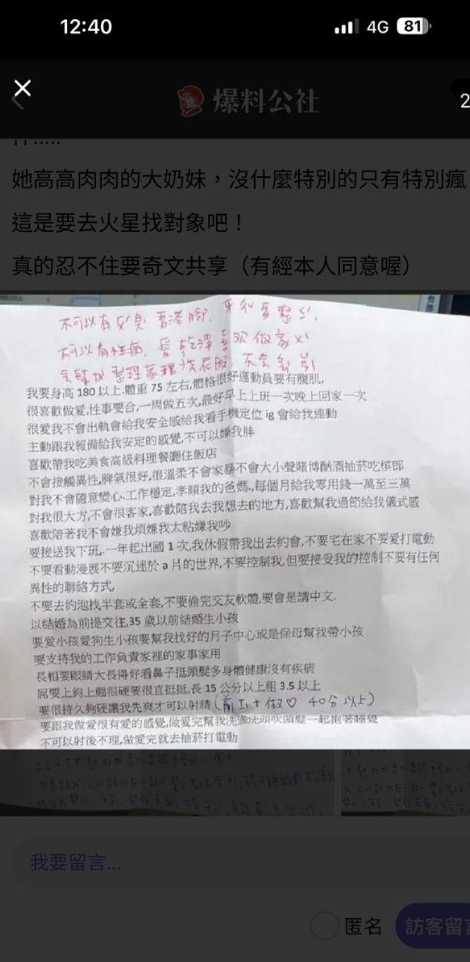 12:40
4G
81
爆料公社
2
她高高肉肉的大奶妹，沒什麼特別的只有特別瘋
這是要去火星找對象吧！
真的忍不住要奇文共享（有經本人同意喔）
不可以有 香港腳，牙 整
不可以有性病
我要身高 180 以上.體重 75 左右,體格很好運動員要有腹肌,
很喜歡做愛,性事要合,一周做五次,最好早上上班一次晚上回家一次
很愛我不會出軌會給我安全感給我看手機定位 ig 會給我連動
主動跟我報備給我安定的感覺,不可以嫌我胖
喜歡帶我吃美食高級料理餐廳住飯店
不會接觸異性,脾氣很好,很溫柔不會家暴不會大小聲賭博酗酒抽菸吃檳榔
對我不會隨意變心.工作穩定,孝順我的爸媽.,每個月給我零用錢一萬至三萬
對我很大方,不會很客家,喜歡陪我去我想去的地方,喜歡幫我過節給我儀式感
喜歡陪著我不會嫌我煩嫌我太黏嫌我吵
要接送我下班,.一年起出國 1 次,我休假帶我出去約會,不要宅在家不要愛打電動
不要看動漫展不要沉迷於 a 片的世界,不要控制我,但要接受我的控制不要有任何
異性的聯絡方式,
不要去約泡找半套或全套,不要偷完交友軟體,要會是講中文.
以結婚為前提交往,35 歲以前結婚生小孩
要愛小孩愛狗生小孩要幫我找好的月子中心或是保母幫我帶小孩
要支持我的工作負責家裡的家事家用
長相要眼睛大長得好看鼻子挺頭髮多身體健康沒有疾病
屌要上夠上翹很硬要很直挺挺,長 15 公分以上粗 3.5 以上
要很持久夠硬讓我先爽才可以射精（前  + 做♡ 40分以上）
要跟我做愛很有愛的感覺,做愛完幫我洗澡洗頭吹頭髮一起抱著睡覺
不可以射後不理,做愛完就去抽菸打電動
我要留言...
匿名
訪客留言